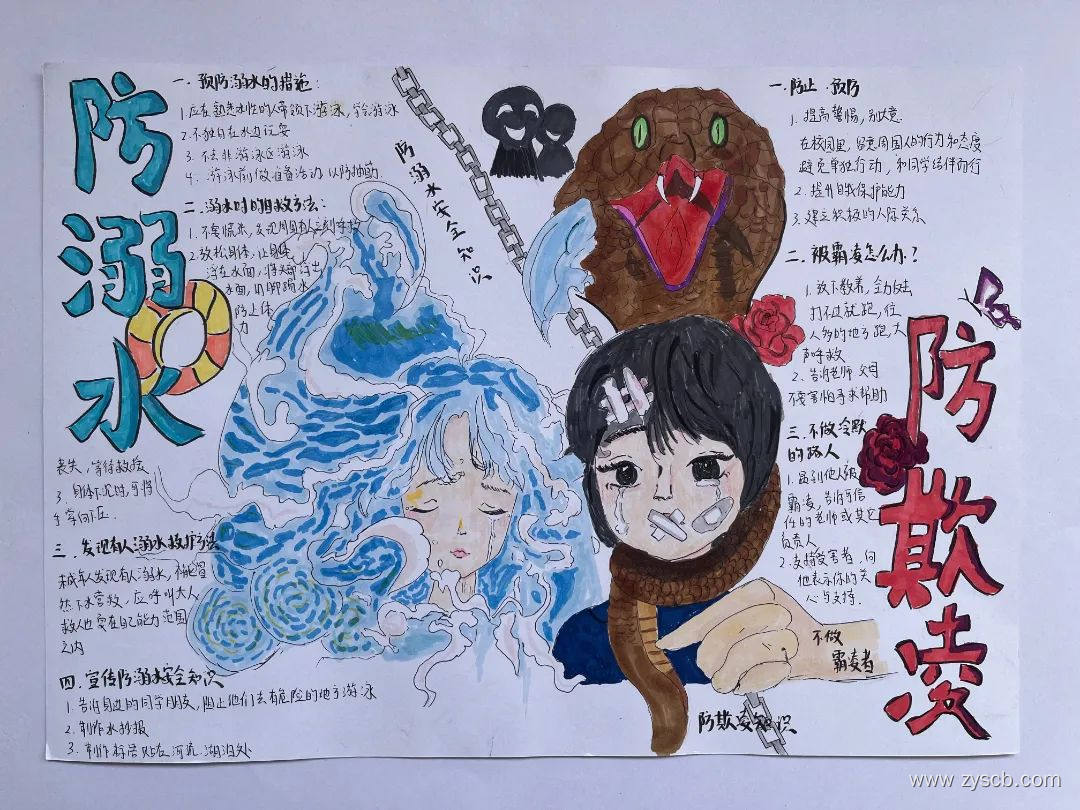 防溺水
一. 预防溺水的措施:
1.应在熟悉水性的人带领下游泳,学会游泳
2.不独自在水边玩耍
3. 不去非游泳区游泳
4. 游泳前做准备活动 以防抽筋.
二. 溺水时的自救方法:
1.不要慌张,发现周围有人立刻呼救
2.放松身体,让身体
浮在水面,将头部浮出
水面,用脚踢水
防止体
力
丧失,等待救援
3. 身体下沉时,可将
手掌向下压.
三. 发现有人溺水救护方法
未成年人发现有人溺水,不能冒
然下水营救,应呼叫大人
救人也要在自己能力范围
之内
四. 宣传防溺水安全知识
1.告诉身边的同学朋友,阻止他们去有危险的地方游泳
2.制作水抄报
3. 制作标语贴在河流.湖泊处
防溺水安全知识
一.防止.预防
1. 提高警惕,别大意
在校园里,留意周围人的行为和态度
避免单独行动,和同学结伴而行
2.提升自我保护能力
3.建立积极的人际关系
二.被霸凌怎么办?
1.放下教养,全力反击
打不过就跑,往
人多的地方跑,大
声呼救
2.告诉老师 父母
不要害怕寻求帮助
三.不做冷默
的路人
1.遇到他人被
霸凌,告诉可信
任的老师或其它
负责人
2.支持受害者,向
他表示你的关
心与支持.
防欺凌
不做
霸凌者
防欺凌知识
www.zyscb.com